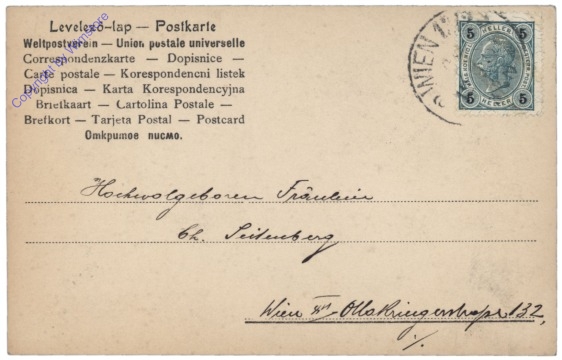 Levelező-lap — Postkarte
Weltpostverein — Union postale universelle
Correspondenzkarte — Dopisnice —
Carte postale — Korespondencni listek
Dopisnica — Karta Korespondencyjna
Briefkaart — Cartolina Postale —
Brefkort — Tarjeta Postal — Postcard
Открытое письмо.
Copyright by Wernstore
WIEN
5 HELLER 5
5 HELLER 5
Hochwolgeboren Fräulein
Ch. Seitenberg
Wien Ottakringerstrasse 132,